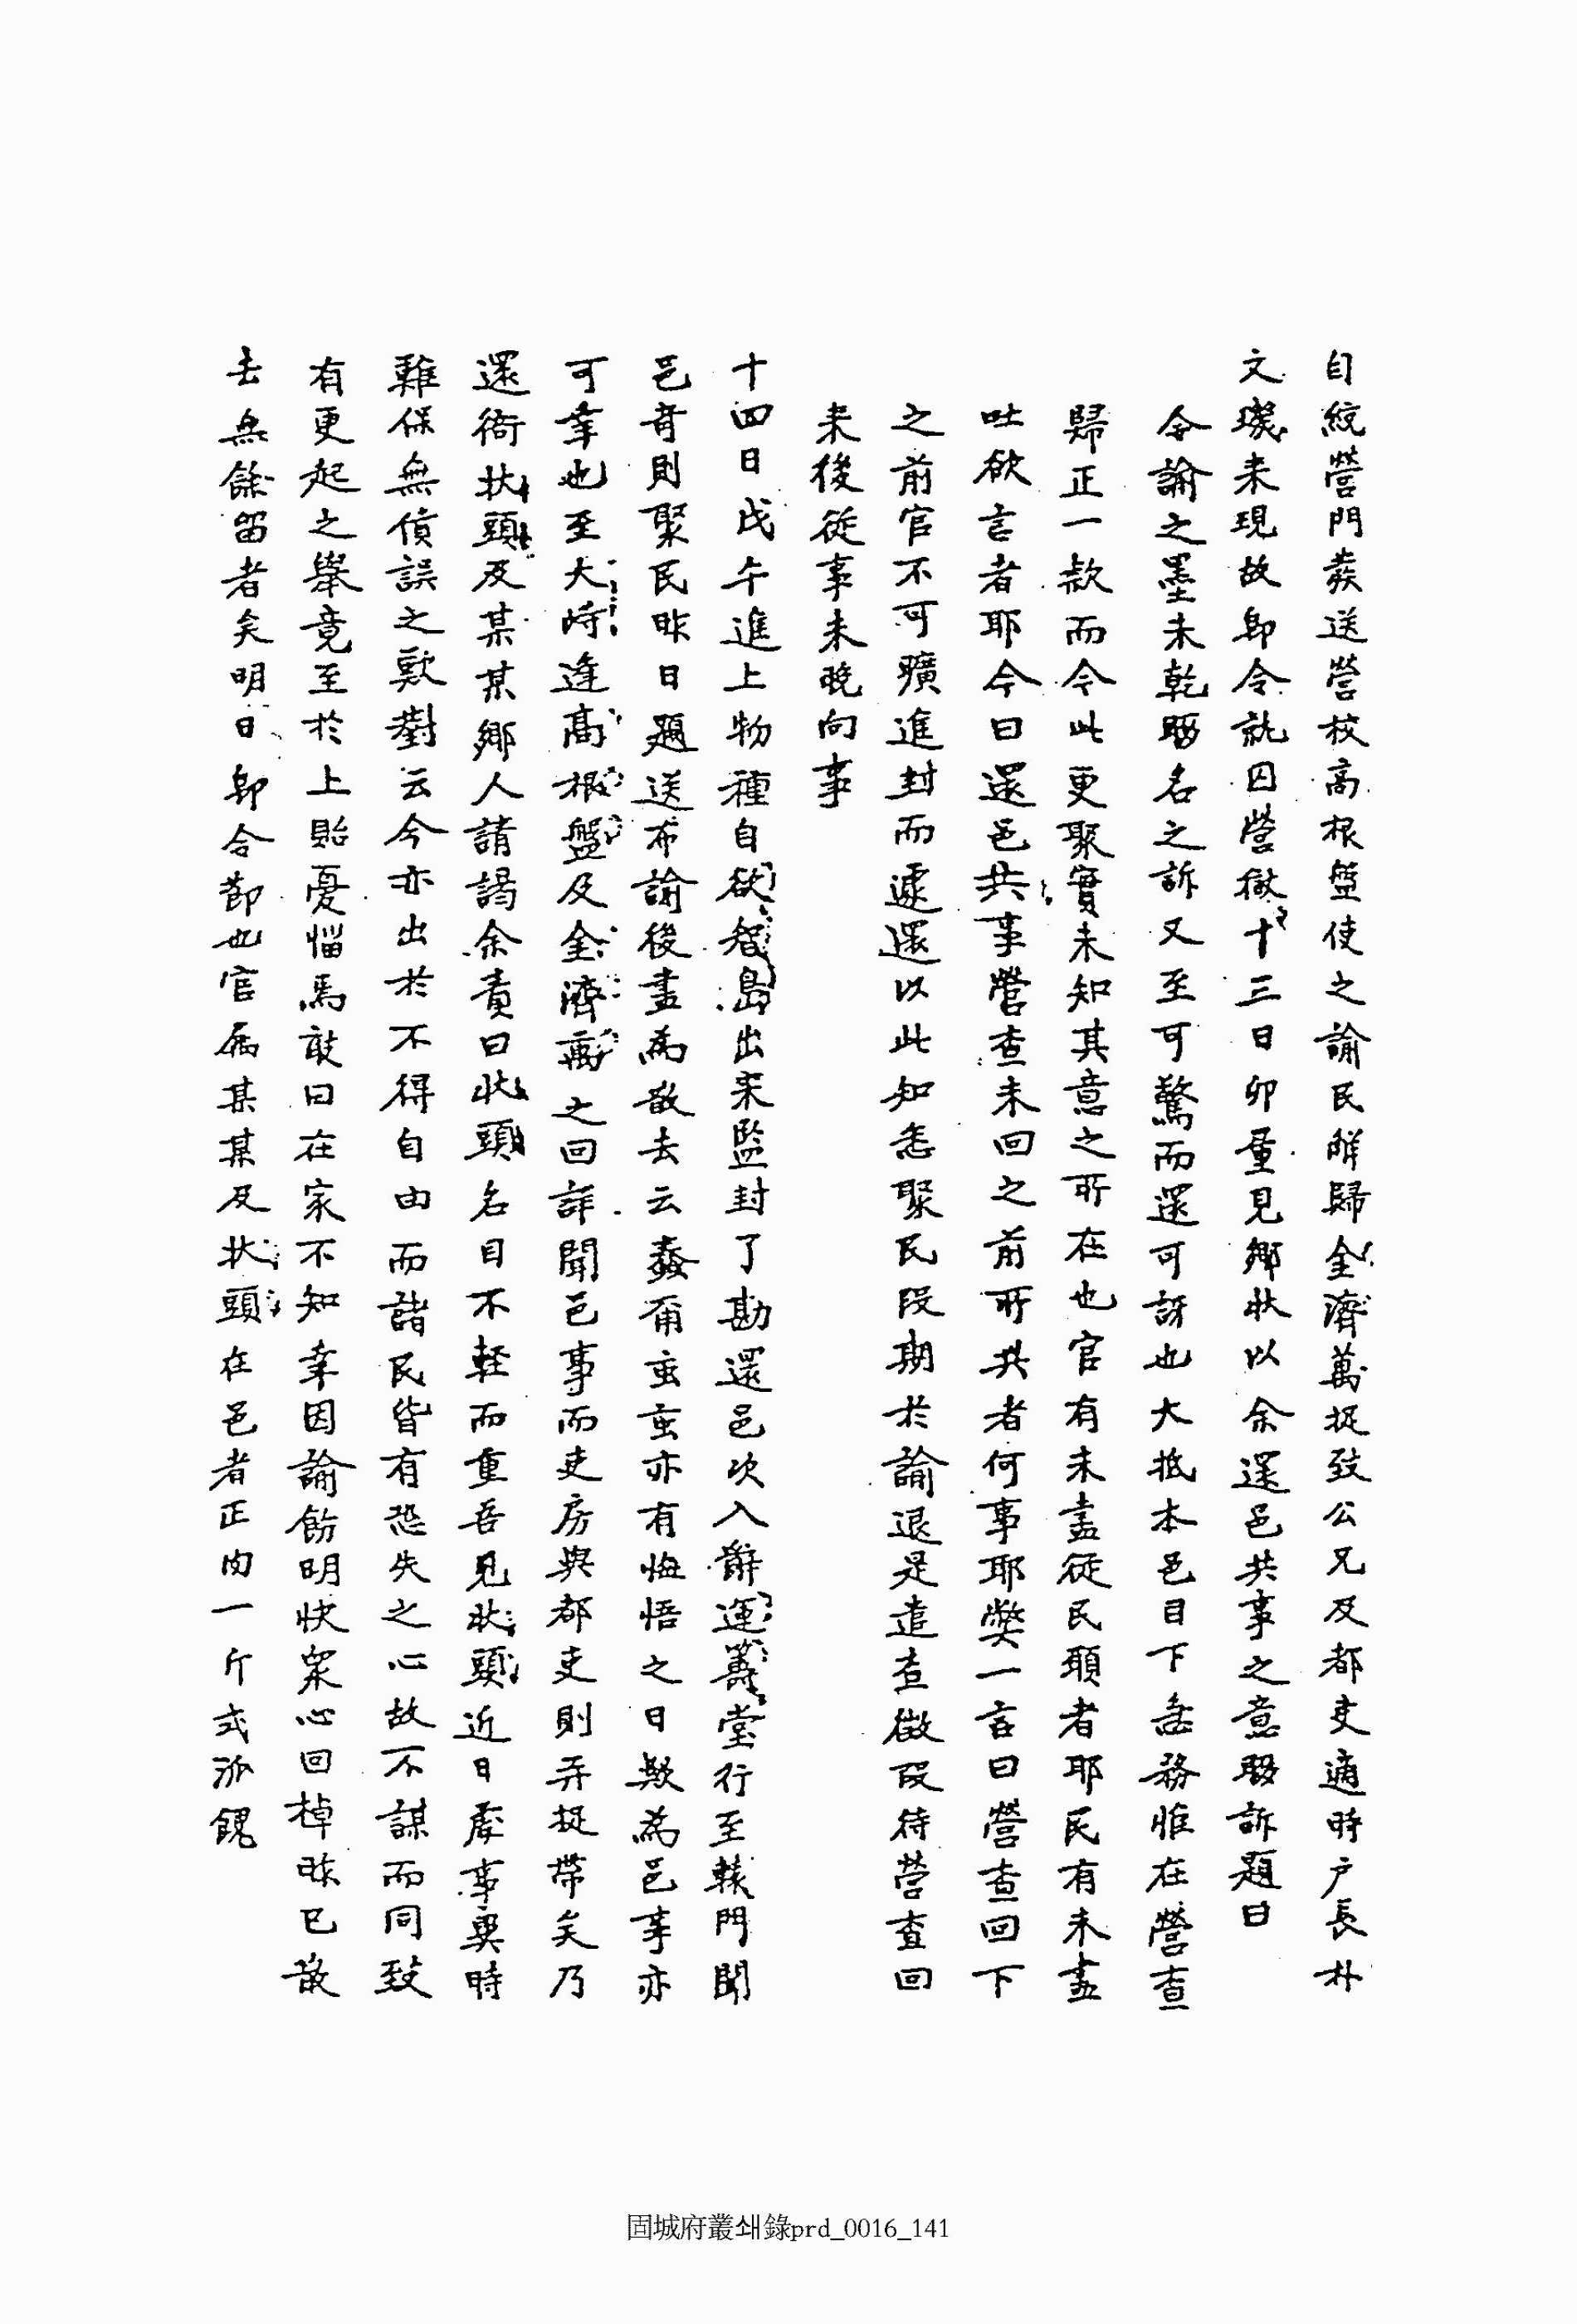 自統營門發送營校高根盤使之諭民解歸金濟萬捉致公兄及都吏適時戶長朴
文璣未現故卽令就囚營獄十三日卯量見鄕狀以余還邑共事之意聯訴題曰
令諭之墨未乾聯名之訴又至可驚而還可訝也大抵本邑目下急務惟在營查
歸正一款而今此更聚實未知其意之所在也官有未盡從民願者耶民有未盡
吐欲言者耶今日還邑共事營查未回之前所共者何事耶獘一言曰營查回下
之前官不可曠進封而遽還以此知悉聚民段期於諭退是遣查徵段待營查回
来後從事未晚向事
十四日戊午進上物種自欲智島出来監封了勘還邑次入辭運籌堂行至轅門聞
邑奇則聚民昨日題送布諭後盡爲散去云蠢爾蚩蚩亦有悔悟之日歟爲邑事亦
可幸也至大峙逢高根盤及金濟萬之回詳聞邑事而吏房與都吏則弄捉帶矣乃
還衙狀頭及某某鄕人請謁余責曰狀頭名目不輕而重吾見狀頭近日處事與時
難保無僨誤之歎對云今亦出於不得自由而諸民皆有恐失之心故不謀而同致
有更起之擧竟至於上貽憂惱焉敢曰在家不知幸因諭飭明快衆心回棹昨已散
去無餘留者矣明日卽令節也官屬某某及狀頭在邑者正肉一斤式派餽
固城府叢쇄錄prd_0016_141